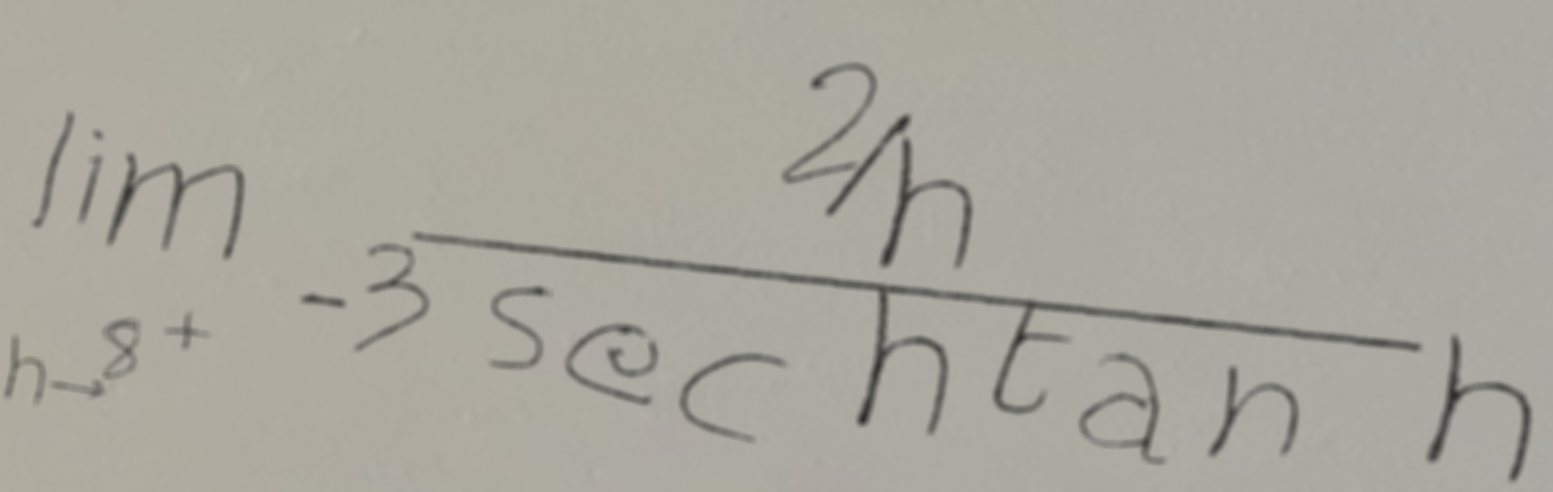 lim h→8⁺ (2/h)/(-3 sec h tan h)